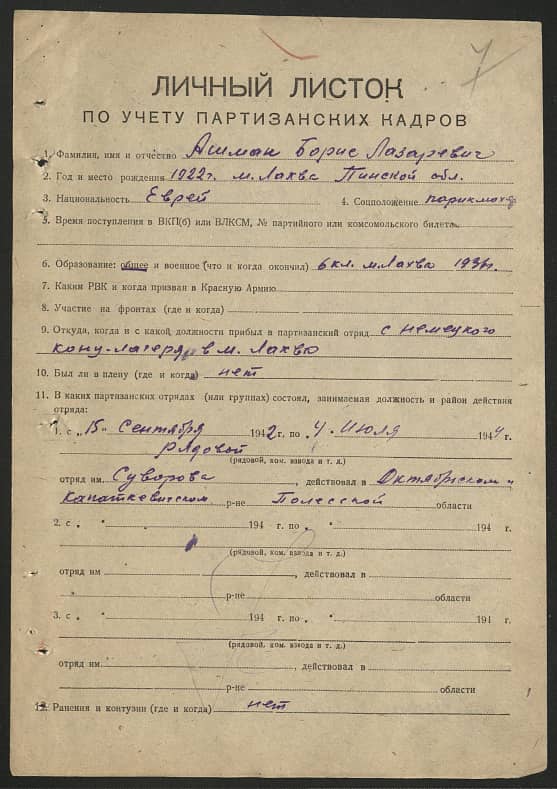 7
ЛИЧНЫЙ ЛИСТОК
ПО УЧЕТУ ПАРТИЗАНСКИХ КАДРОВ
1. Фамилия, имя и отчество Ашман Борис Лазаревич
2. Год и место рождения 1922г. м. Лахва Пинской обл.
3. Национальность Еврей 4. Соцположение парикмахер
5. Время поступления в ВКП(б) или ВЛКСМ, № партийного или комсомольского билета
6. Образование: общее и военное (что и когда окончил) 6 кл. м. Лахва
7. Каким РВК и когда призван в Красную Армию
8. Участие на фронтах (где и когда)
9. Откуда, когда и с какой должности прибыл в партизанский отряд с немецкого
конц-лагеря в м. Лахва
10. Был ли в плену (где и когда) нет
11. В каких партизанских отрядах (или группах) состоял, занимаемая должность и район действия
отряда:
1. с „15" Сентября 1942 г. по „4" Июля 1944 г.
рядовой
(рядовой, ком. взвода и т. д.)
отряд им Суворова, действовал в Октябрьском и
Капаткевичском р-не Полесской области
2. с „ " 194 г. по „ " 194 г.
(рядовой, ком. взвода и т. д.)
отряд им , действовал в
р-не области
3. с „ " 194 г. по „ " 194 г.
(рядовой, ком. взвода и т. д.)
отряд им. , действовал в
р-не области
12. Ранения и контузии (где и когда) нет